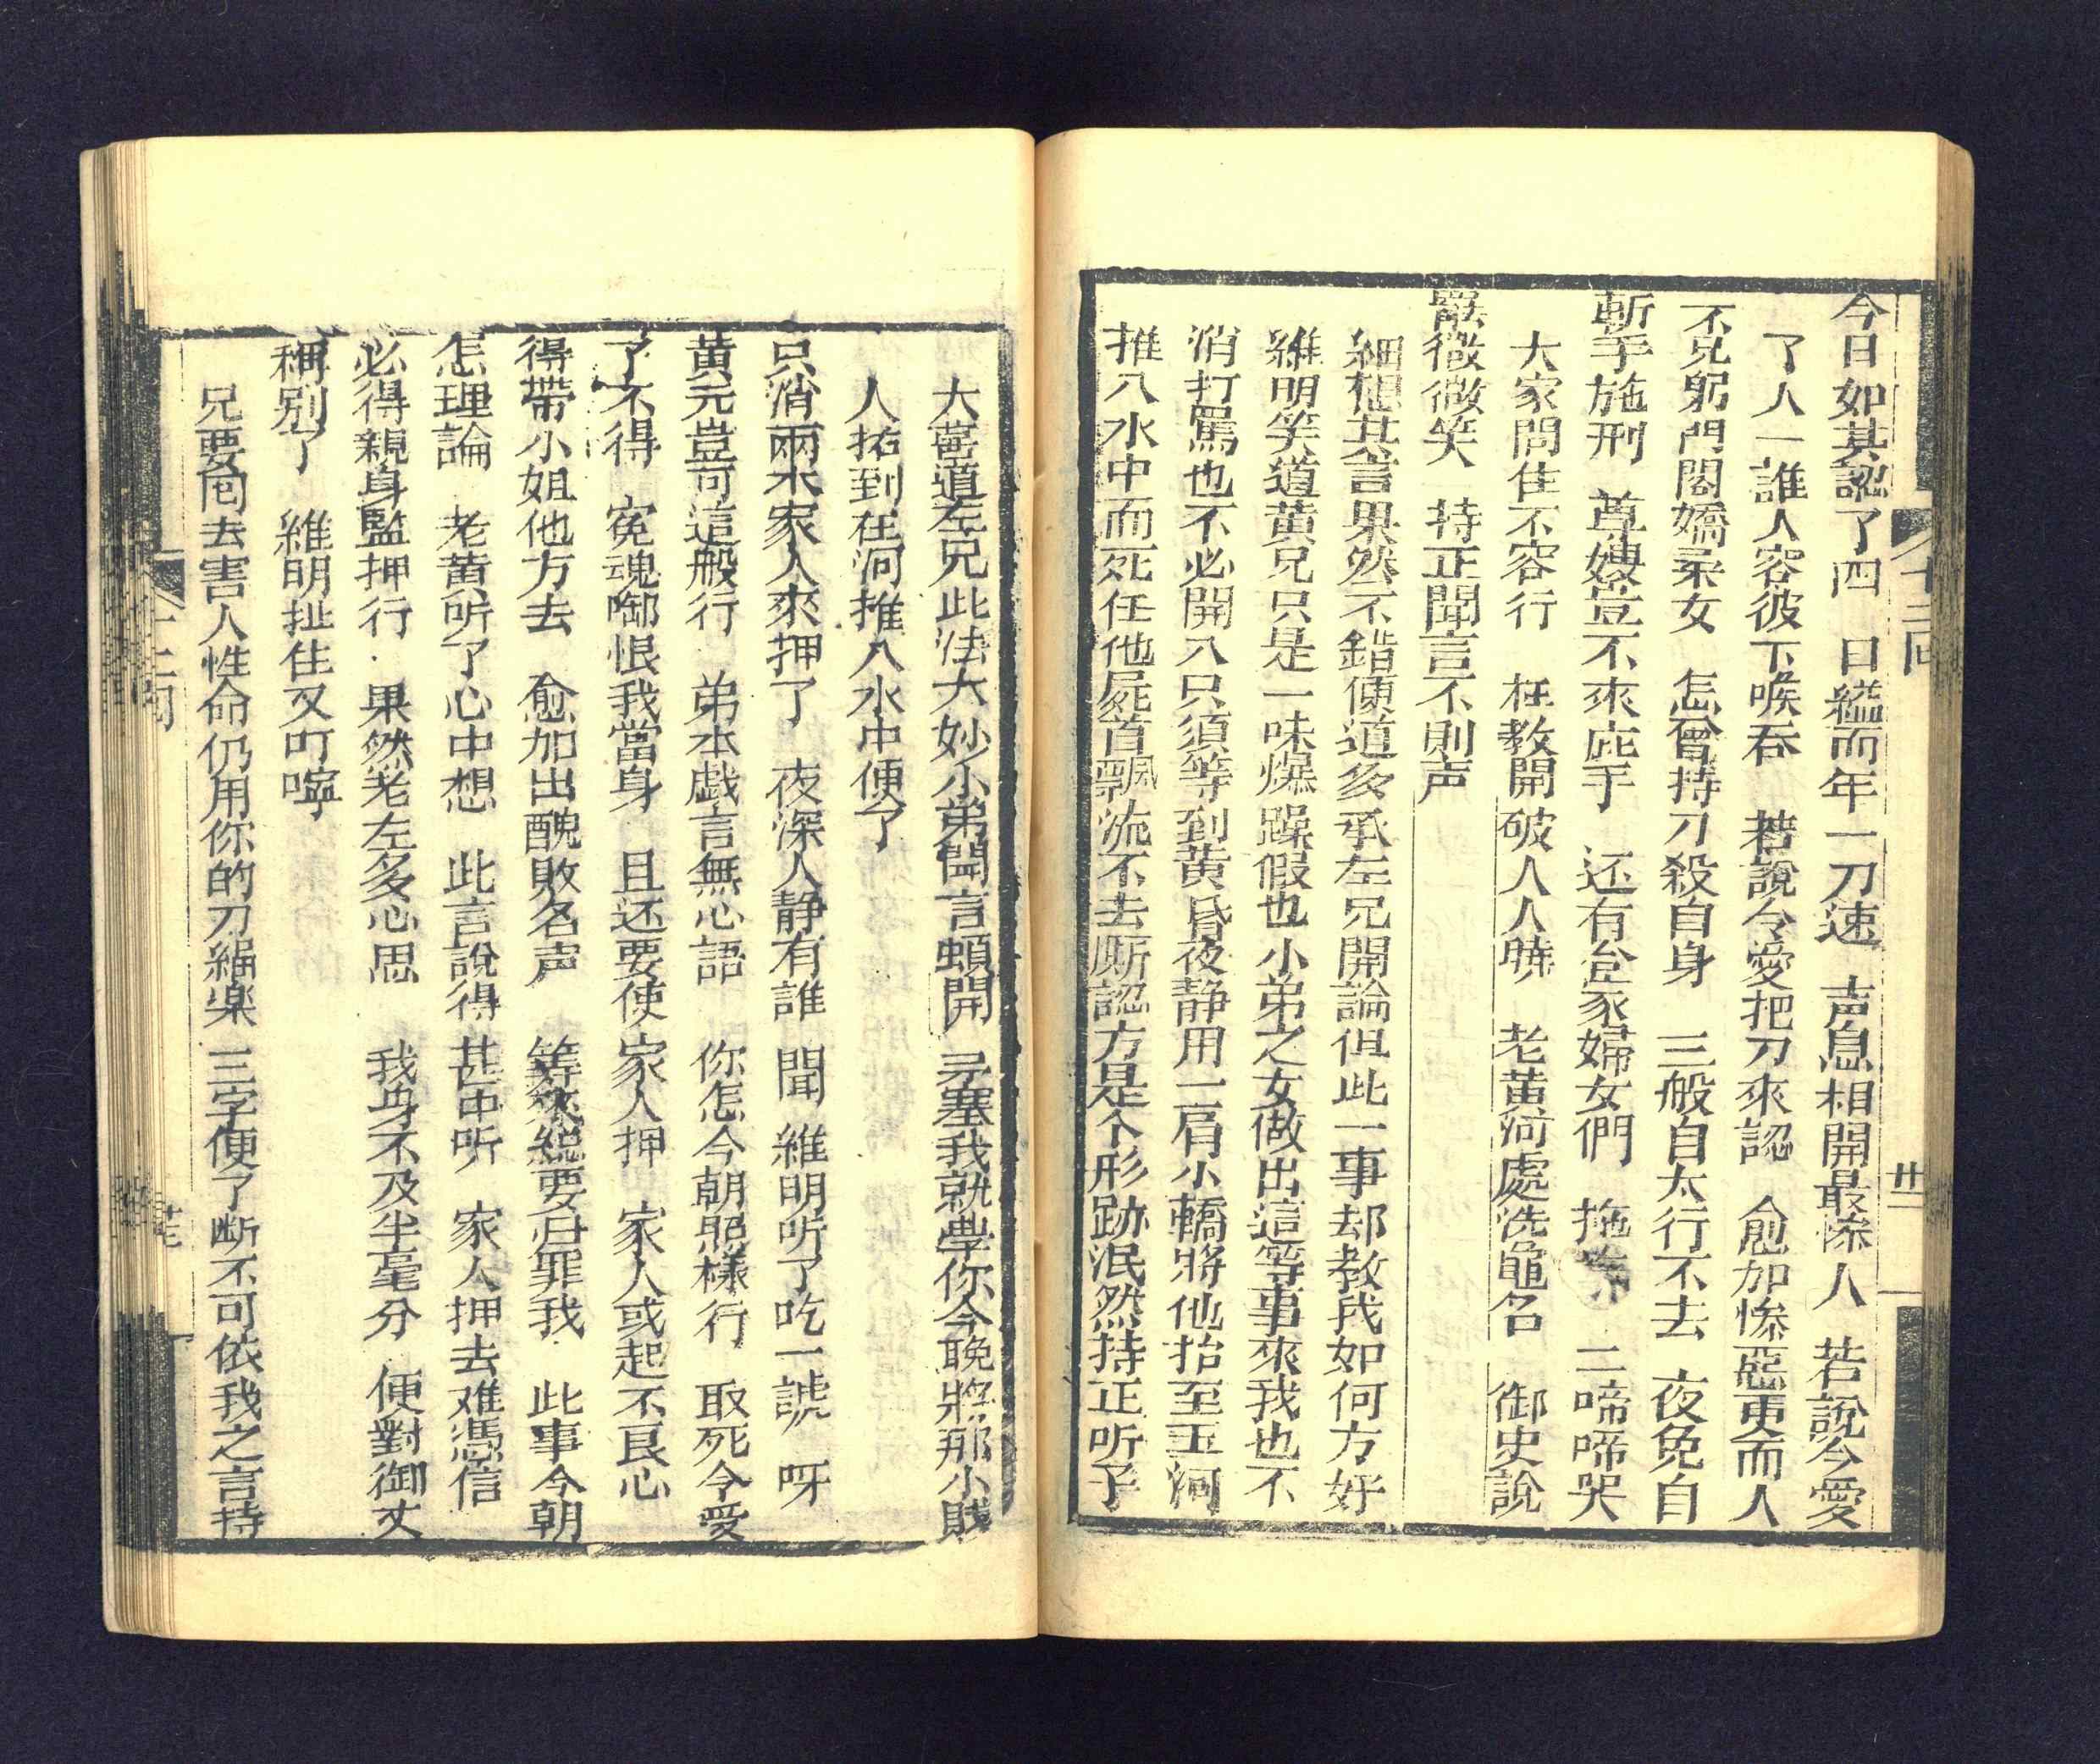 今日如其認了四　日縊而年一刀速　声息相開最慘人　若說今愛
了人一誰人容彼下喉吞　若說令愛把刀來認　愈加慘惡更而人
不兄躬門閣嬌柔女　怎會持刀殺自身　三般自太行不去　夜免自
斬手施刑　尊嫂豈不來庇手　还有台家婦女們　拖　二啼啼哭
大家問住不容行　枉教開破人人曉　老黄河處洗龜名　御史說
罷微微笑　持正聞言不則声
細想其言果然不錯便道多承左兄開論但此一事却教我如何方好
維明笑道黄兄只是一味爆躁假也小弟之女做出這等事來我也不
消打罵也不必開入只須等到黄昏夜静用一肩小轎將他抬至玉河
推入水中而死任他屍首飄流不去厮認方是个形跡泯然持正听了
十二回
卅二
大喜道左兄此法大妙小弟聞言頓開　茅塞我就學你今晚將那小賤
人拓到在河推入水中便了
只消兩木家人來押了　夜深人静有誰　聞　維明听了吃一諕　呀
黄元豈可這般行　弟本戯言無心語　你怎今朝照樣行　取死令愛
了不得　寃魂啣恨我當身　且还要使家人押　家人或起不良心
得帶小姐他方去　愈加出醜敗名声　等來総要归罪我　此事今朝
怎理論　老黄听了心中想　此言說得甚中听　家人押去难馮信
必得親身監押行　果然老左多心思　我身不及半毫分　便對御丈
稱别了　維明扯住又叮嚀
兄要囘去害人性命仍用你的刀縄楽　三字便了断不可依我之言持